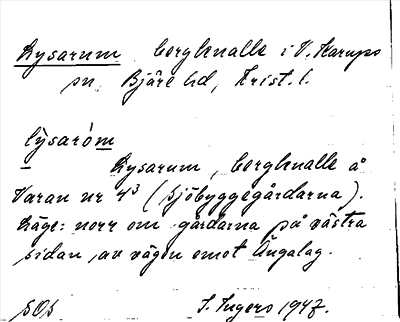 Lysarum, bergknalle i V. Karups
sn, Bjäre hd, Krist. l.
lýsaróm
Lysarum, bergknalle å
Varan nr 4³ (Sjöbyggegårdarna).
Läge: norr om gårdarna på västra
sidan av vägen emot Ängalag.
SOS I. Ingers 1947.